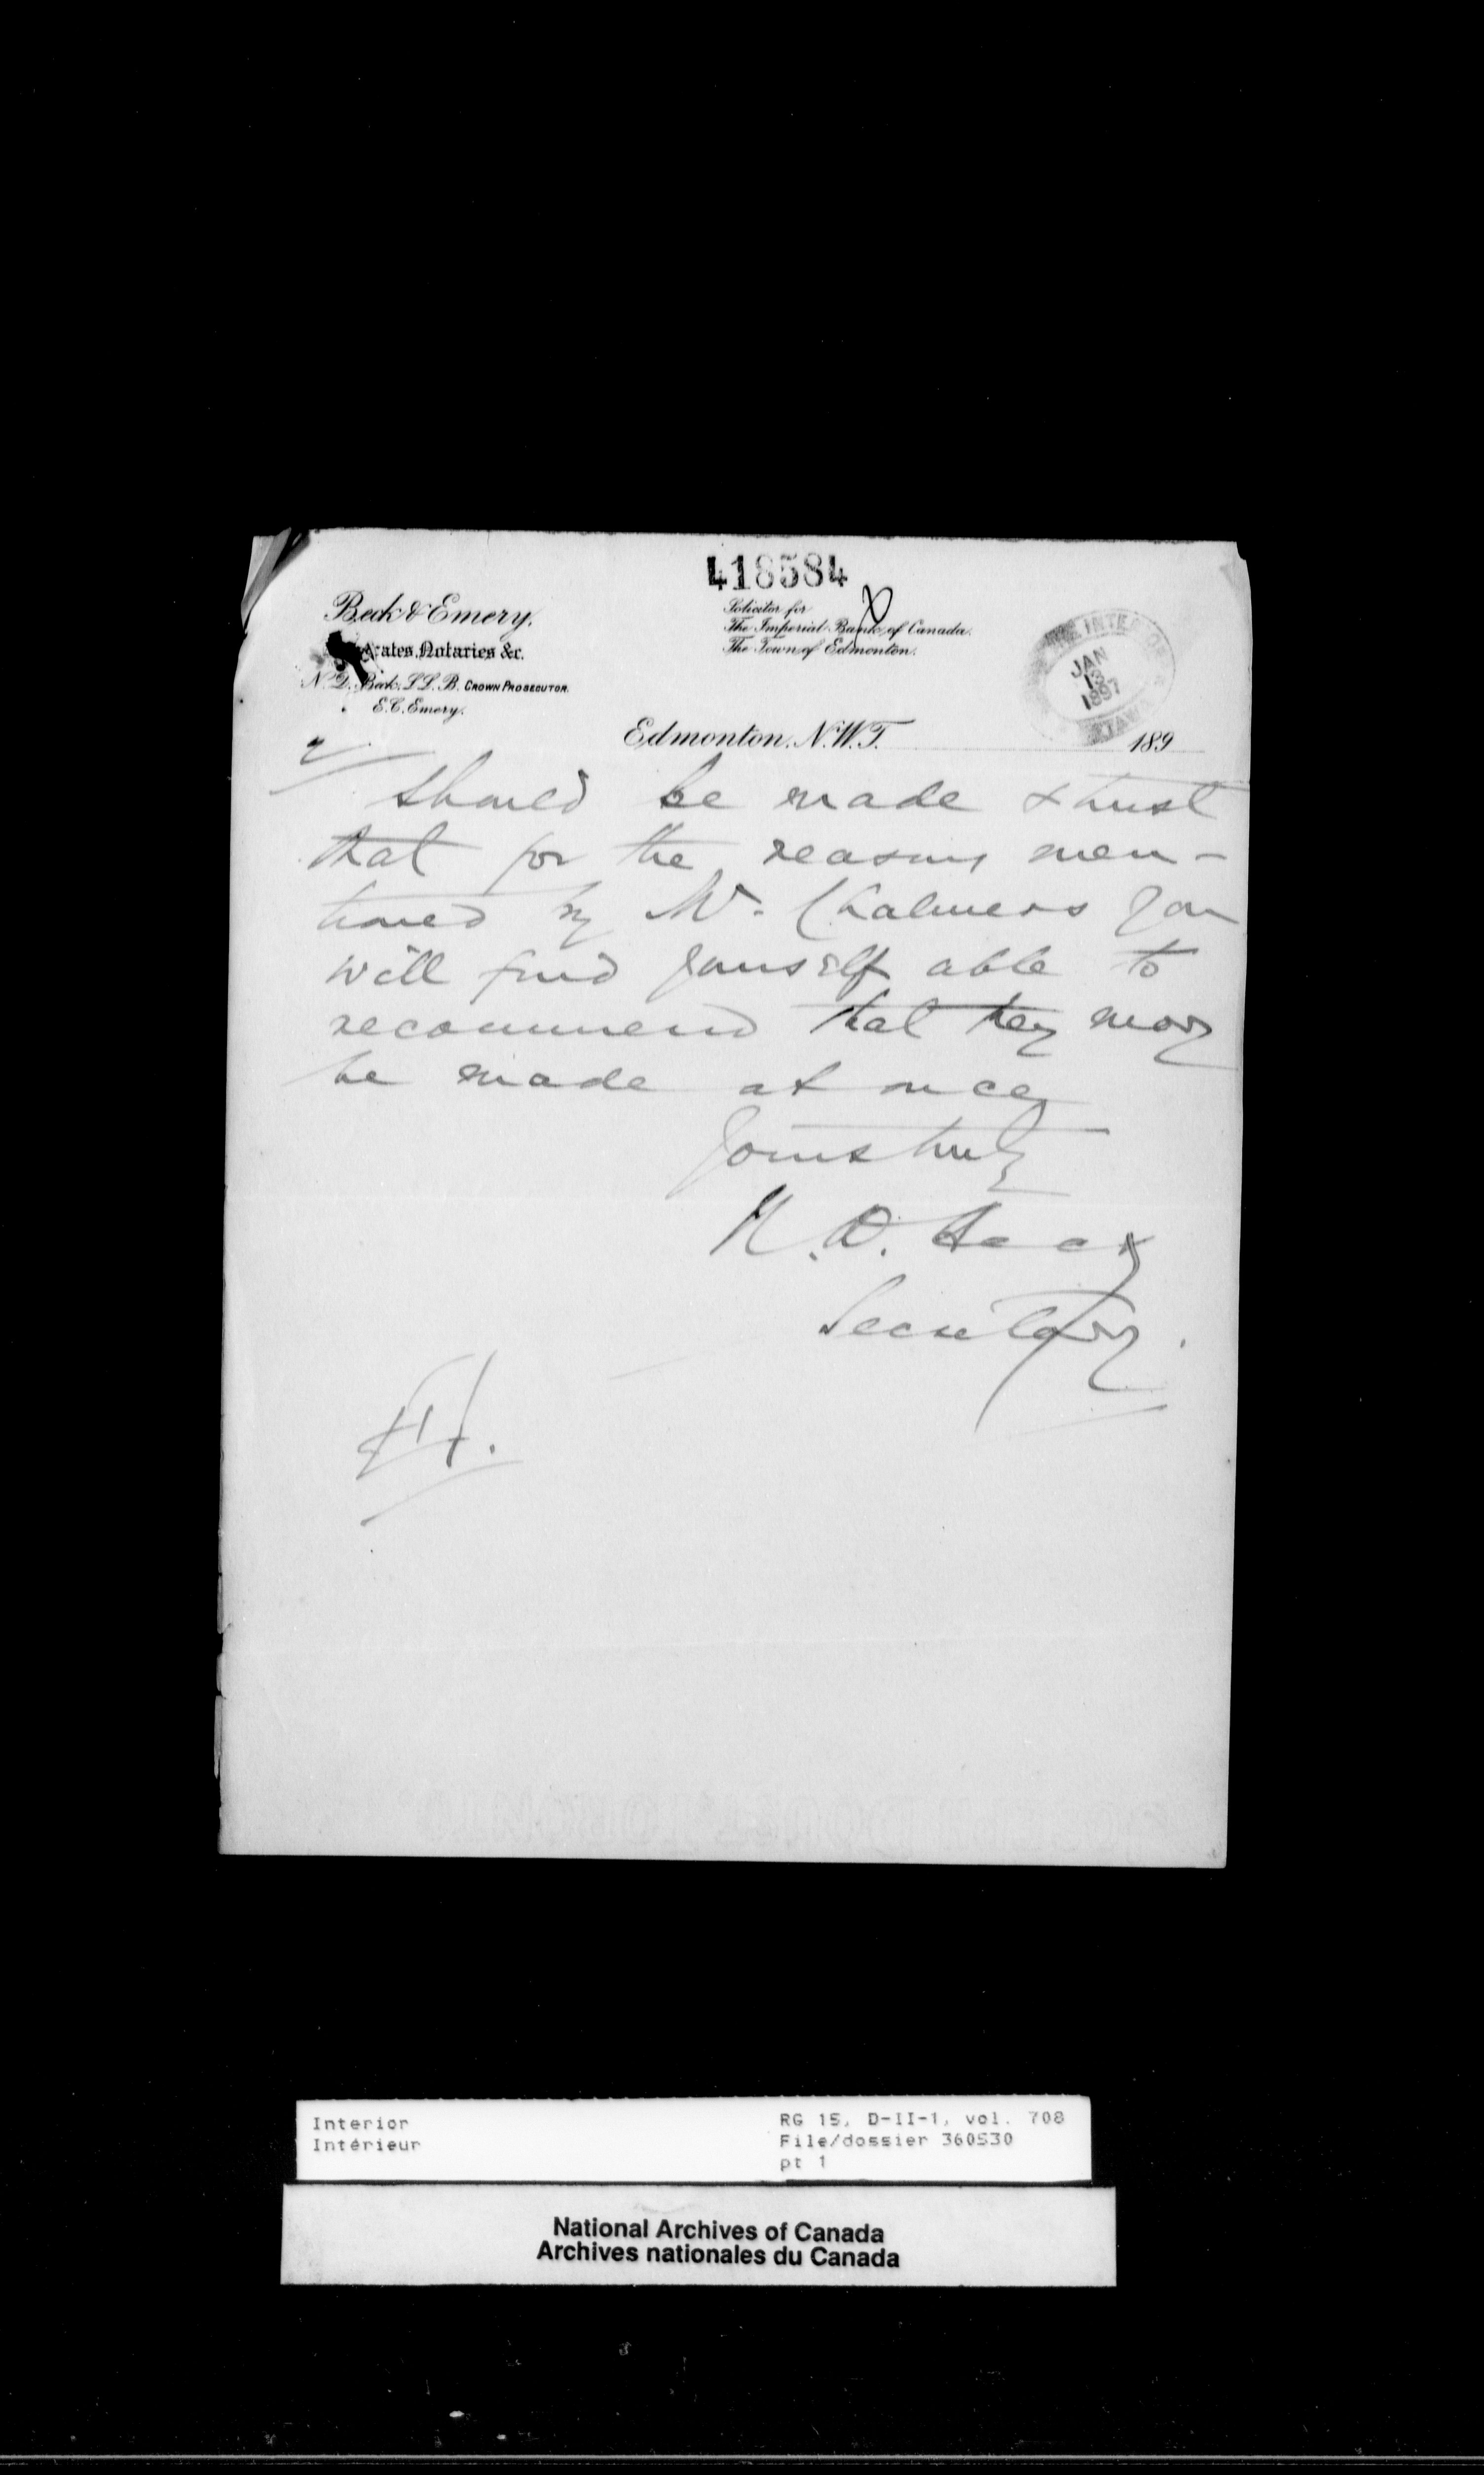 418584
Beck & Emery,
Notaries &c.
N. D. Beck, LL. B. CROWN PROSECUTOR.
E. C. Emery.
Solicitor for
The Imperial Bank of Canada.
The Town of Edmonton.
JAN
13
1897
Edmonton, N.W.T. 189
2/
should be made & trust
that for the reasons men-
tioned by Mr. Chalmers you
will find yourself able to
recommend that they may
be made at once
Yours truly
N. D. Beck
Secretary.
Interior
Intérieur
RG 15, D-II-1, vol. 708
File/dossier 360530
pt 1
National Archives of Canada
Archives nationales du Canada